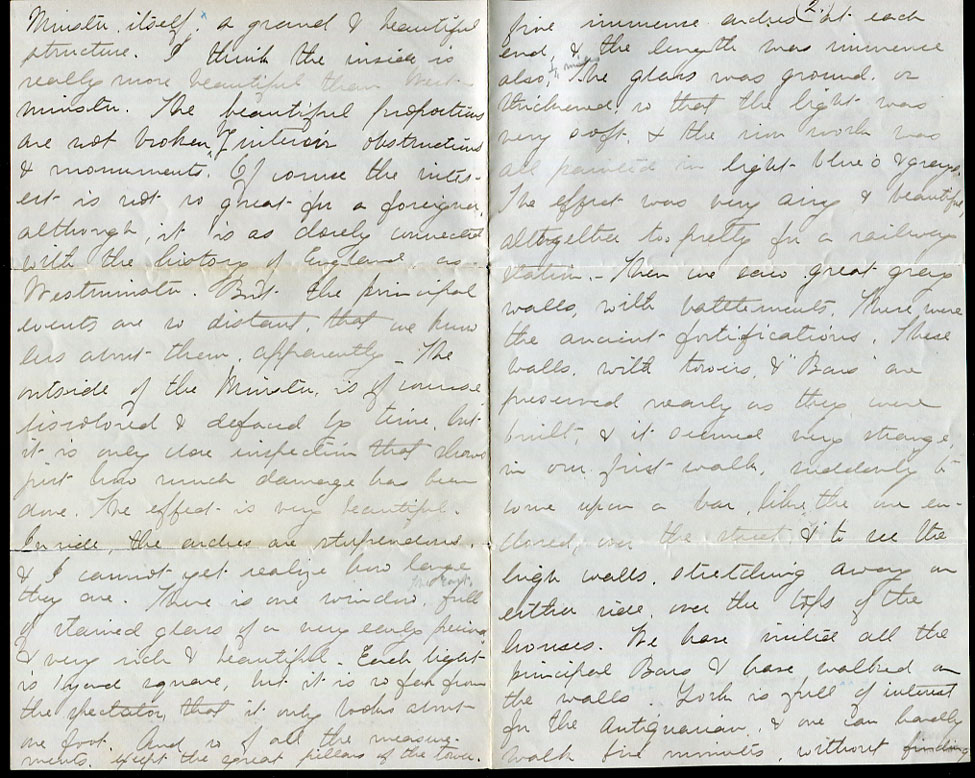 Minster itself, a grand & beautiful
structure. I think the inside is
really more beautiful than West-
minster. The beautiful proportions
are not broken by interior obstructions
& monuments. Of course the inter-
est is not so great for a foreigner,
although, it is as closely connected
with the history of England, as
Westminster. But the principal
events are so distant, that we know
less about them, apparently – The
outside of the Minster, is of course
discolored & defaced by time, but
it is only close inspection that shows
just how much damage has been
done. The effect is very beautiful.
Inside, the arches are stupendous.
& I cannot yet realize how large
they are. There is one window, full
of stained glass of a very early period
& very rich & beautiful. Each light
is 1 yard square, but it is so far from
the spectator, that it only looks about
one foot. And so of all the measure-
ments. except the great pillars of the tower.
2)
five immense arches at each
end, & the length was immense
also, The glass was ground, or
thickened, so that the light was
very soft, & the iron work was
all painted in light blue's & grays,
The effect was very airy & beautiful,
altogether too pretty for a railway
station. – Then we saw great grey
walls, with battlements. These were
the ancient fortifications. These
walls, with towers, & "Bars" are
preserved nearly as they were
built, & it seemed very strange,
in our first walk, suddenly to
come upon a bar, like the one en-
closed, over the street & to see the
high walls, stretching away on
either side, over the tops of the
houses. We have visited all the
principal Bars & have walked on
the walls. York is full of interest
for the Antiquarian, & one can hardly
walk five minutes, without finding